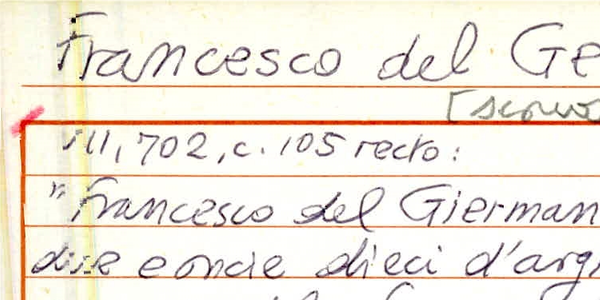 Francesco del Ge
[scrivo
III, 702, c. 105 recto:
"Francesco del Gierman
dixe e oncie dieci d'arg